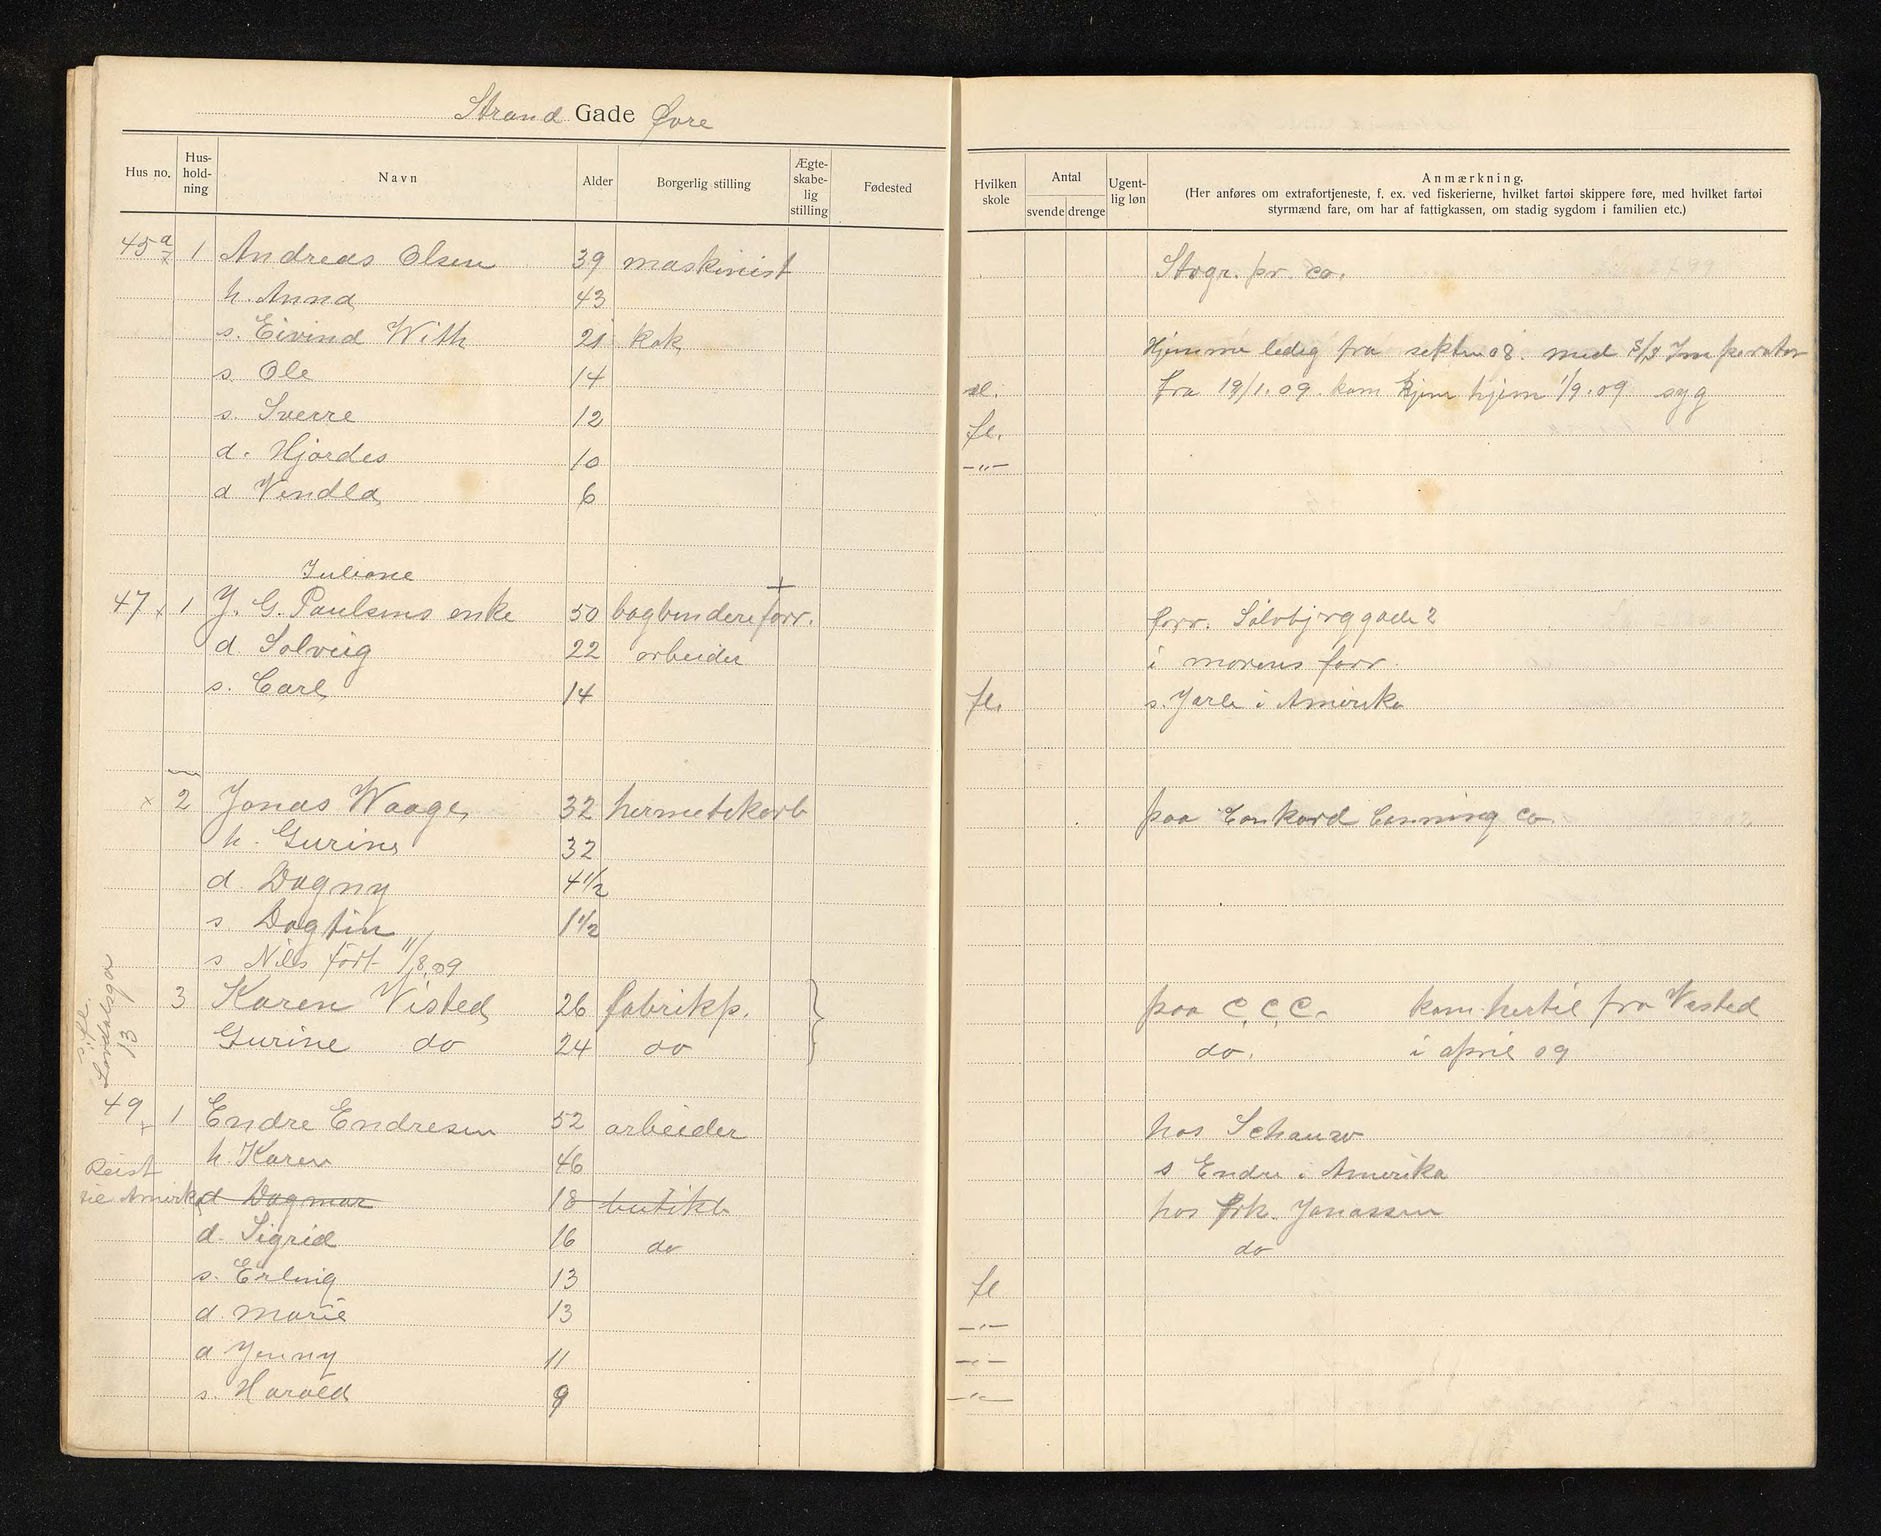 Strand Gade Øvre
Hus no. Hus-hold-ning Navn Alder Borgerlig stilling Ægte-skabe-lig stilling Fødested
Hvilken skole Antal svende drenge Ugent-lig løn Anmærkning.
(Her anføres om extrafortjeneste, f. ex. ved fiskerierne, hvilket fartøi skippere føre, med hvilket fartøi
styrmænd fare, om har af fattigkassen, om stadig sygdom i familien etc.)
45 a 1 Andreas Olsen 39 maskinist Stvgr. pr. co.
h. Anna 43
s. Eivind With 21 kok Hjemme ledig fra sektbr 08. med S/S Imperator
s. Ole 14 fl. fra 19/1. 09. kom hjem 1/9. 09 syg
s. Sverre 12 fl.
d. Hjørdes 10 –"–
d Vendla 6
Juliane
47 x 1 J. G. Paulsens enke 50 bogbinderiforr. forr. Sølvbjerggade 2
d. Solveig 22 arbeider i morens forr.
s. Carl 14 fl. s. Jarle i Amerika
x 2 Jonas Waage 32 hermetikarb paa Conkord Canning Co.
h. Gurine 32
d. Dagny 4 1/2
s. Dagfin 1 1/2
s Nils født 11/8.09
3 Karen Visted 26 fabrikp. paa C.C.C. kom hertil fra Visted
Gurine do 24 do do. i april 09
Lövdalsga 13
49 x 1 Endre Endresen 52 arbeider hos Schanw
h. Karen 46 s Endre i Amerika
Reist
til Amerika d Dagmar 18 butikb hos Frk. Jonassen
d. Sigrid 16 do do
s. Erling 13 fl
d. Marie 13 –"–
d Jenny 11 –"–
s. Harald 9 –"–